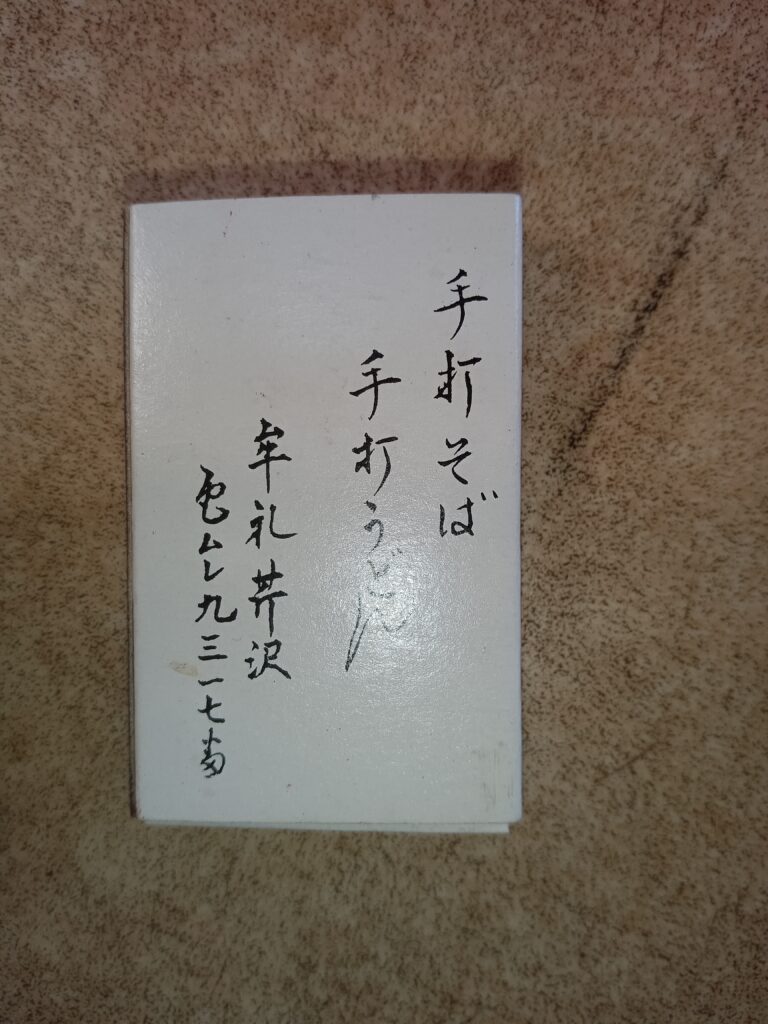 手打そば
手打うどん
牟礼芹沢
電ムレ九三一七番